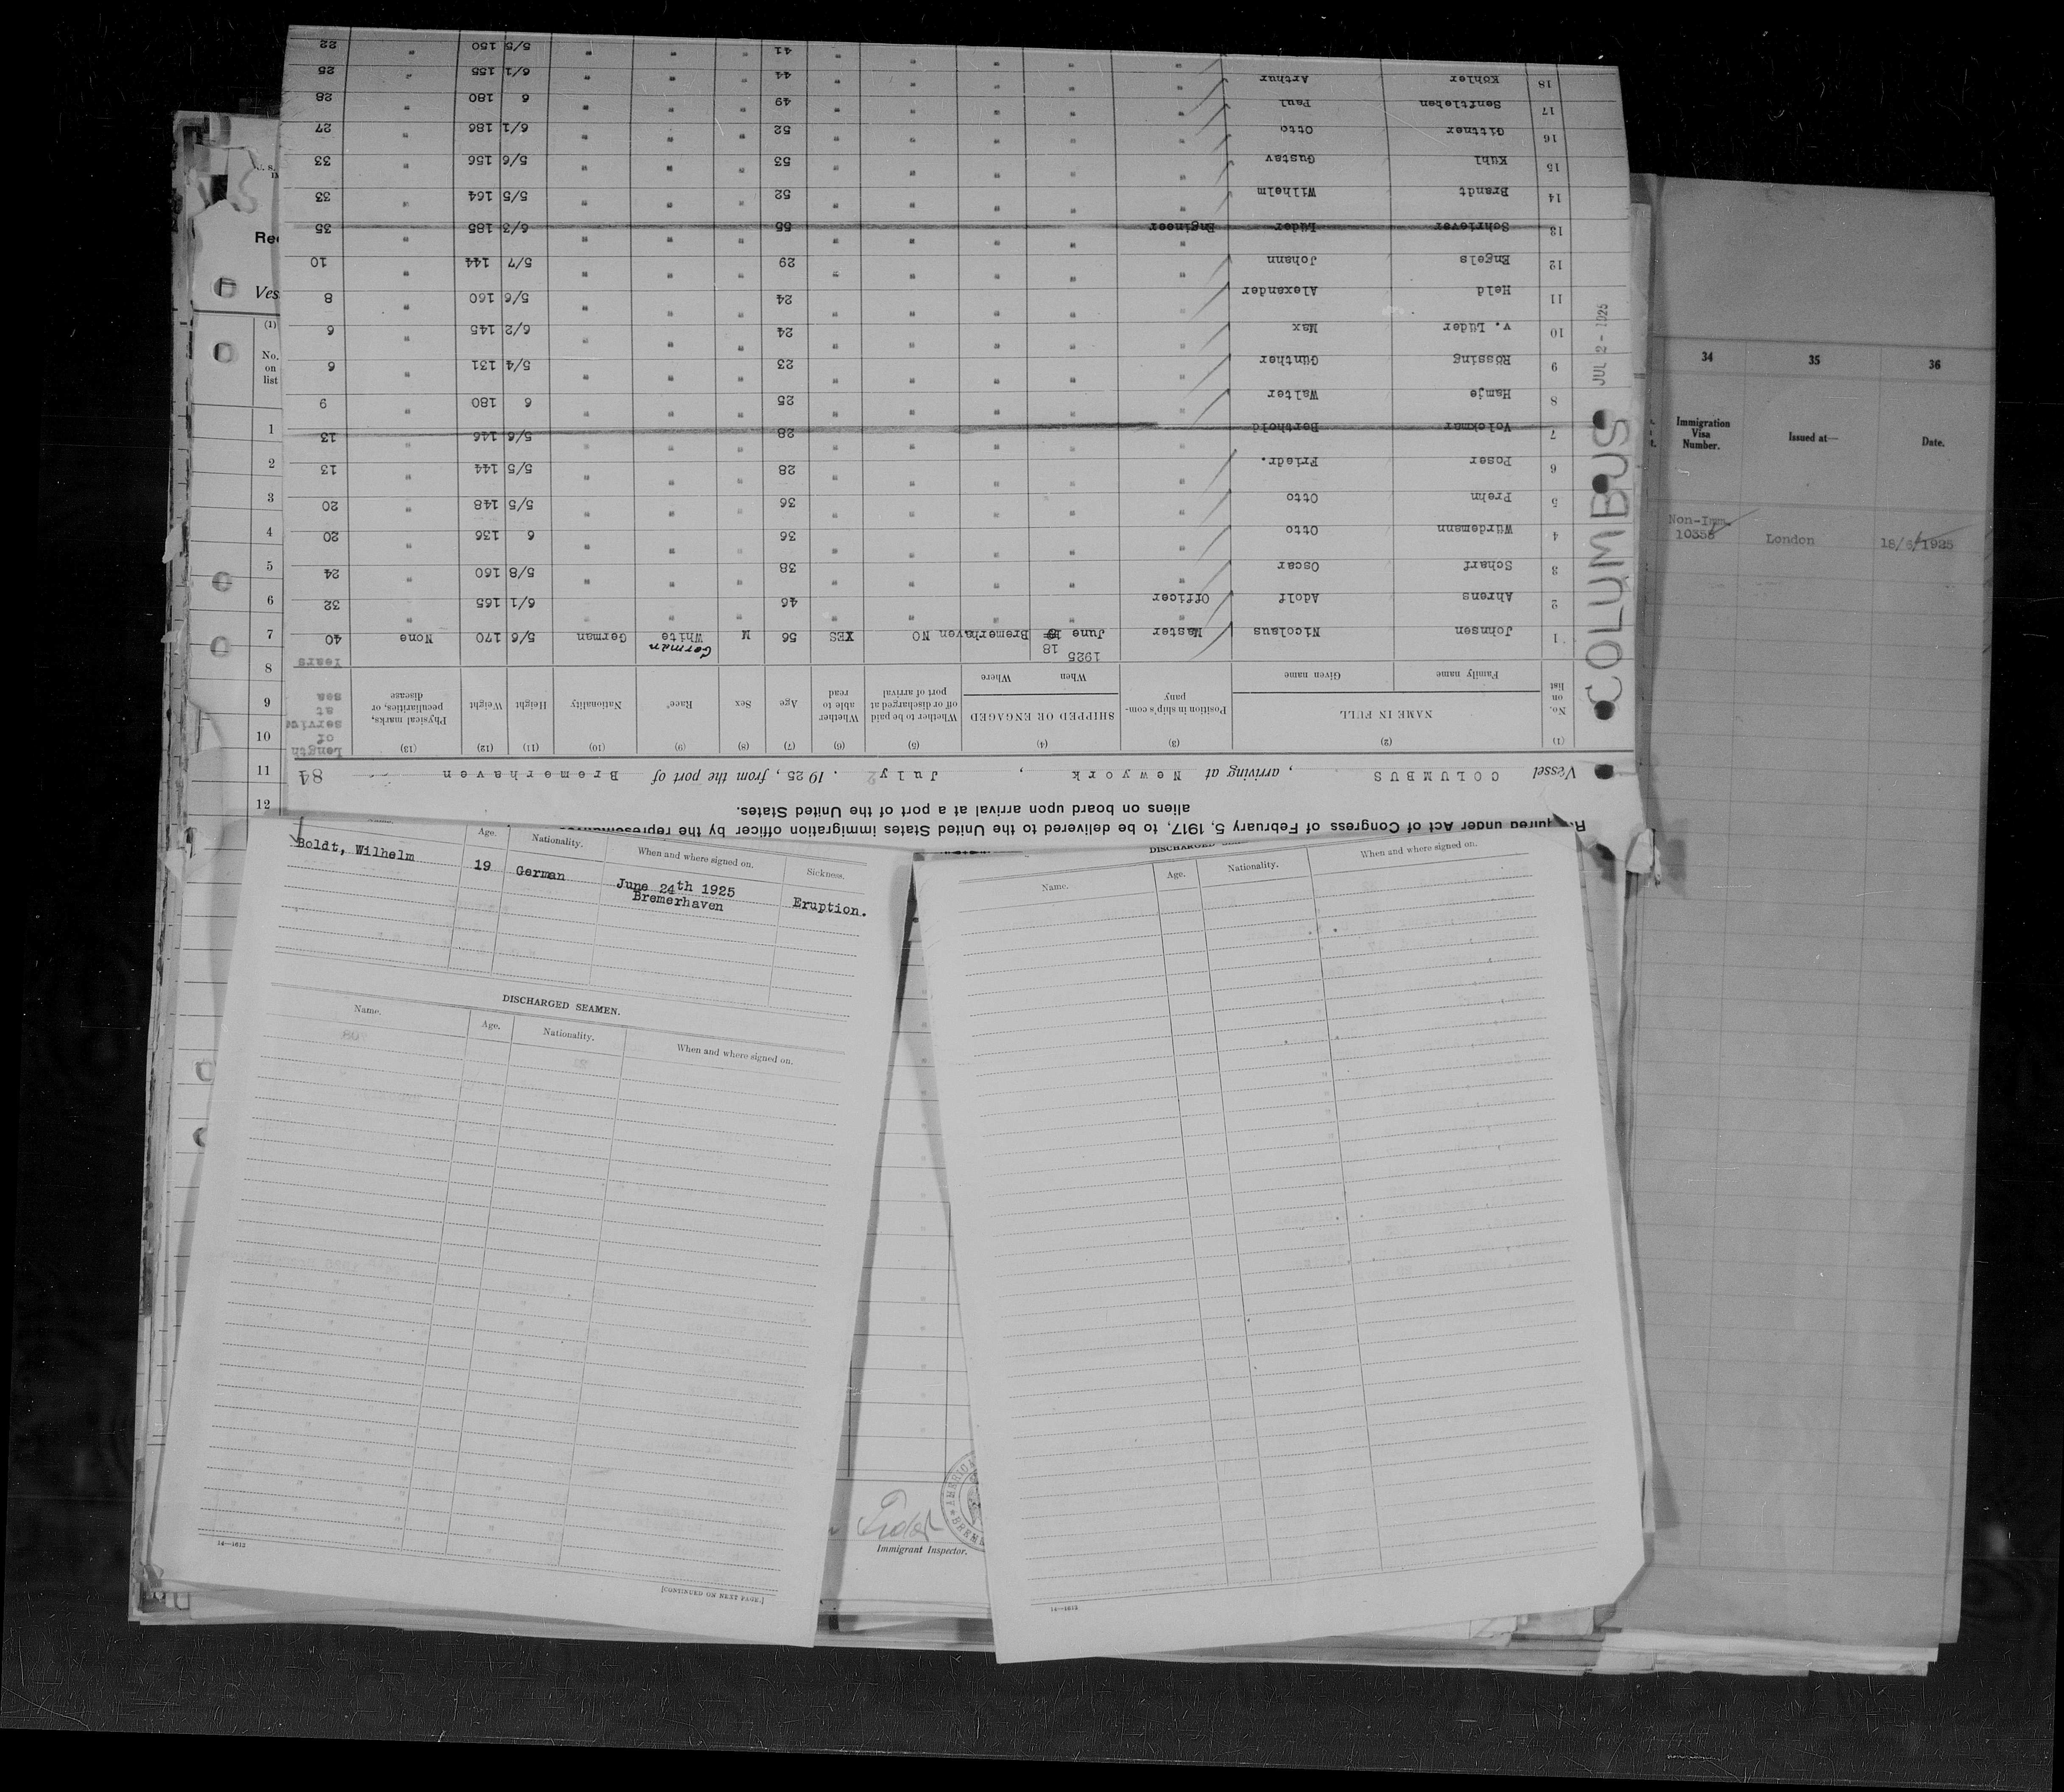 Required under Act of Congress of February 5, 1917, to be delivered to the United States immigration officer by the
aliens on board upon arrival at a port of the United States.
Vessel COLUMBUS, arriving at Newyork, July 2. 1925, from the port of Bremerhaven 84
(1) (2) (3) (4) (5) (6) (7) (8) (9) (10) (11) (12) (13)
No. on list NAME IN FULL Family name Given name Position in ship's company SHIPPED OR ENGAGED When Where Whether to be paid off or discharged at port of arrival Whether able to read Age Sex Race Nationality Height Weight Physical marks, peculiarities, or disease Length of service at sea Years
1 Johnsen Nicolaus Master 1925 June 18 Bremerhaven NO YES 56 M White German German 5/6 170 None 40
2 Ahrens Adolf Officer " " " 46 " " " 6/1 165 " 32
3 Scharf Oscar " " " 38 " " " 5/8 160 " 24
4 Würdemann Otto " " " " " 36 " " " 6 136 " 20
5 Prehn Otto " " " " " 36 " " " 5/5 148 " 20
6 Poser Friedr. " " " " " 28 " " " 5/5 144 " 13
7 Volckmar Berthold " " " " " 28 " " " 5/6 146 " 13
8 Hamje Walter " " " " " 25 " " " 6 180 " 9
9 Rössing Günther " " " " " 23 " " " 5/4 131 " 6
10 v. Lüder Max " " " " " 24 " " " 6/2 145 " 6
11 Held Alexander " " " " " 24 " " " 5/6 160 " 8
12 Engels Johann " " " " " 29 " " " 5/7 144 " 10
13 Schriever Lüder Engineer " " " " 55 " " " 6/3 185 " 35
14 Brandt Wilhelm " " " " " 52 " " " 5/5 164 " 33
15 Kühl Gustav " " " " " 53 " " " 5/6 156 " 33
16 Gittner Otto " " " " " 52 " " " 6/1 186 " 27
17 Senftleben Paul " " " " " 49 " " " 6 180 " 28
18 Köhler Arthur " " " " " 44 " " " 6/1 155 " 25
" " " " " 41 " " " 5/5 150 " 22
COLUMBUS
JUL 2 - 1925
Ves
(1)
No.
on
list
1
2
3
4
5
6
7
8
9
10
11
12
34 35 36
Immigration Visa Number. Issued at— Date.
Non-Imm.
10358 London 18/6/1925
Age. Nationality. When and where signed on. Sickness.
Boldt, Wilhelm 19 German June 24th 1925 Eruption.
Bremerhaven
DISCHARGED SEAMEN.
Name. Age. Nationality. When and where signed on.
14—1613
[CONTINUED ON NEXT PAGE.]
Immigrant Inspector.
Name. Age. Nationality. When and where signed on.
14—1613